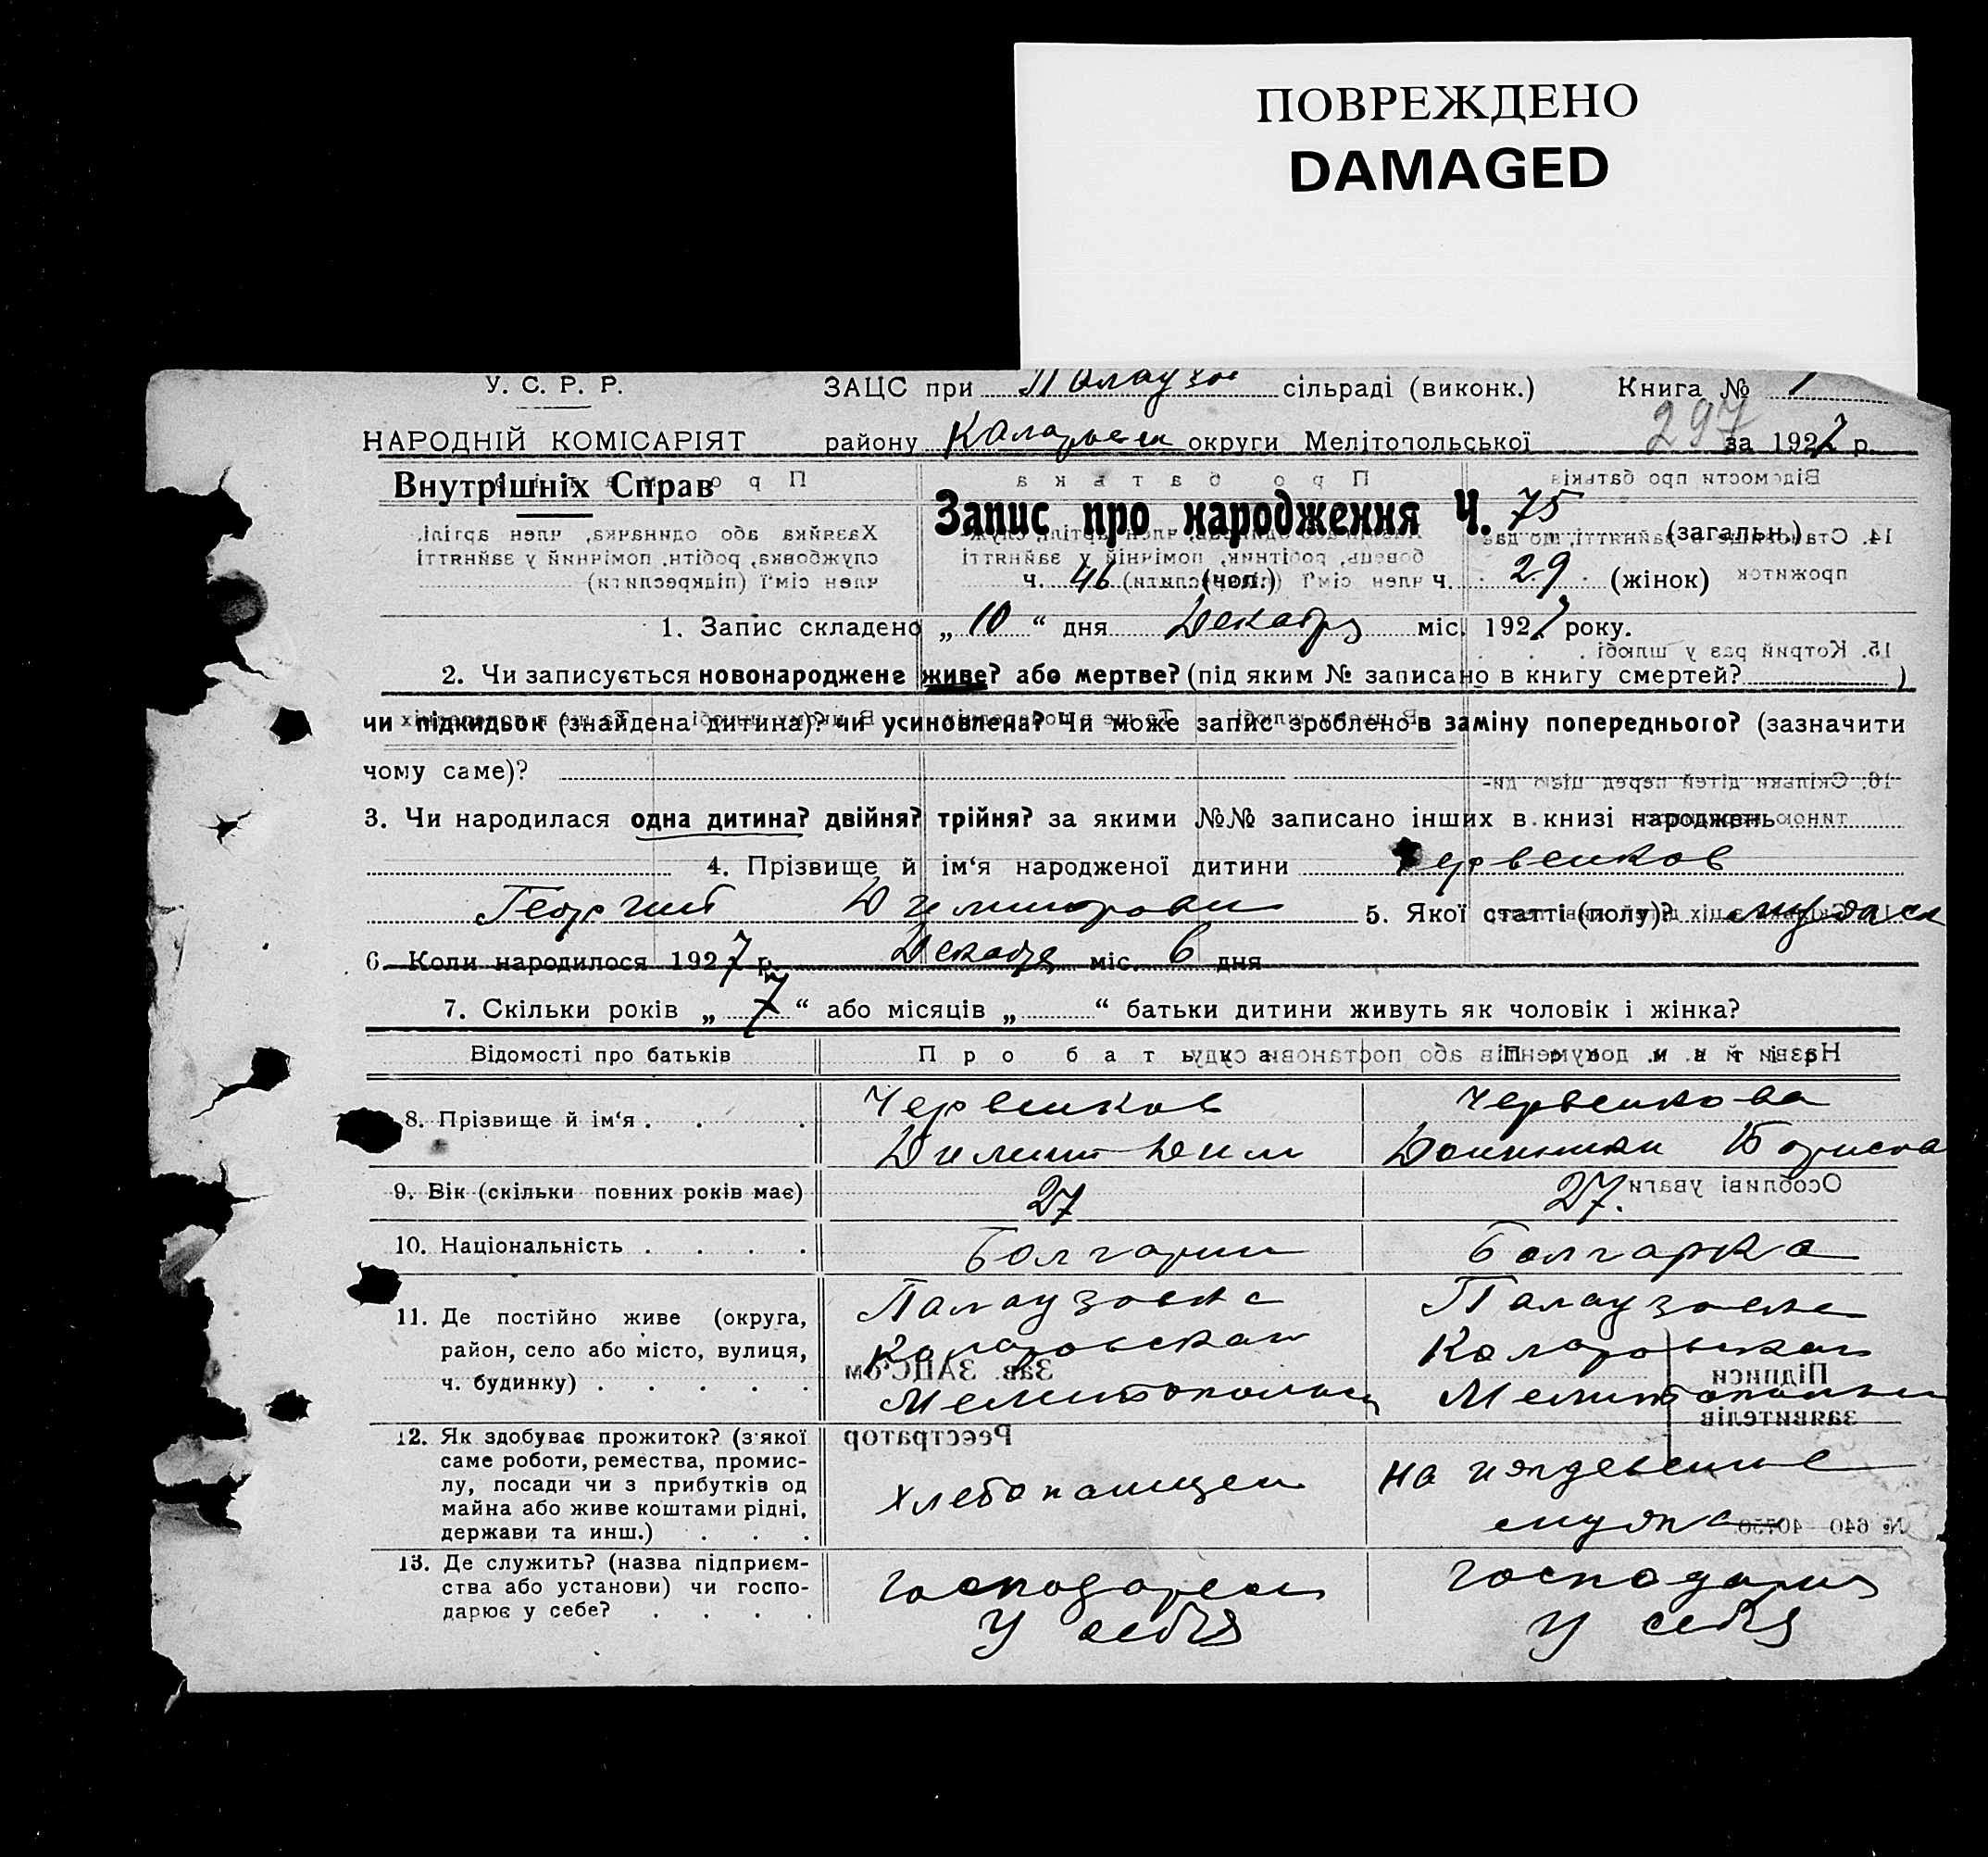 ПОВРЕЖДЕНО
DAMAGED
У. С. Р. Р. ЗАЦС при Палаузов сільраді (виконк.) Книга № 1
НАРОДНІЙ КОМІСАРІЯТ району Коларовск округи Мелітопольської 297 за 1927 р.
Внутрішніх Справ
Запис про народження Ч. 75 (загальн.)
ч. 46 (чол.) ч. 29 (жінок)
1. Запис складено „ 10 “ дня Декабря міс. 1927 року.
2. Чи записується новонароджене живе? або мертве? (під яким № записано в книгу смертей? )
чи підкидьок (знайдена дитина)? чи усиновлена? Чи може запис зроблено в заміну попереднього? (зазначити
чому саме)?
3. Чи народилася одна дитина? двійня? трійня? за якими №№ записано інших в книзі народжень
4. Прізвище й ім‘я народженої дитини Червенков
Георгий Димитрович 5. Якої статті (полу)? мужск
6. Коли народилося 1927 р. Декабря міс. 6 дня
7. Скільки років „ 7 “ або місяців „ “ батьки дитини живуть як чоловік і жінка?
Відомості про батьків Про батька Про матір
8. Прізвище й ім‘я . . . Червенков Червенкова
Димит Дим Борисова
9. Вік (скільки повних років має) 27 27.
10. Національність . . . . Болгарин Болгарка
11. Де постійно живе (округа, Палаузовка Палаузовка
район, село або місто, вулиця, Коларовская Коларовская
ч. будинку) . . . . . Мелитопольск Мелитопольск
12. Як здобуває прожиток? (з якої
саме роботи, ремества, промис-
лу, посади чи з прибутків од хлебопашцем на иждевение
майна або живе коштами рідні,
держави та инш.) . . . мужа
13. Де служить? (назва підприєм-
ства або установи) чи госпо-
дарює у себе? . . . .
у себя у себя